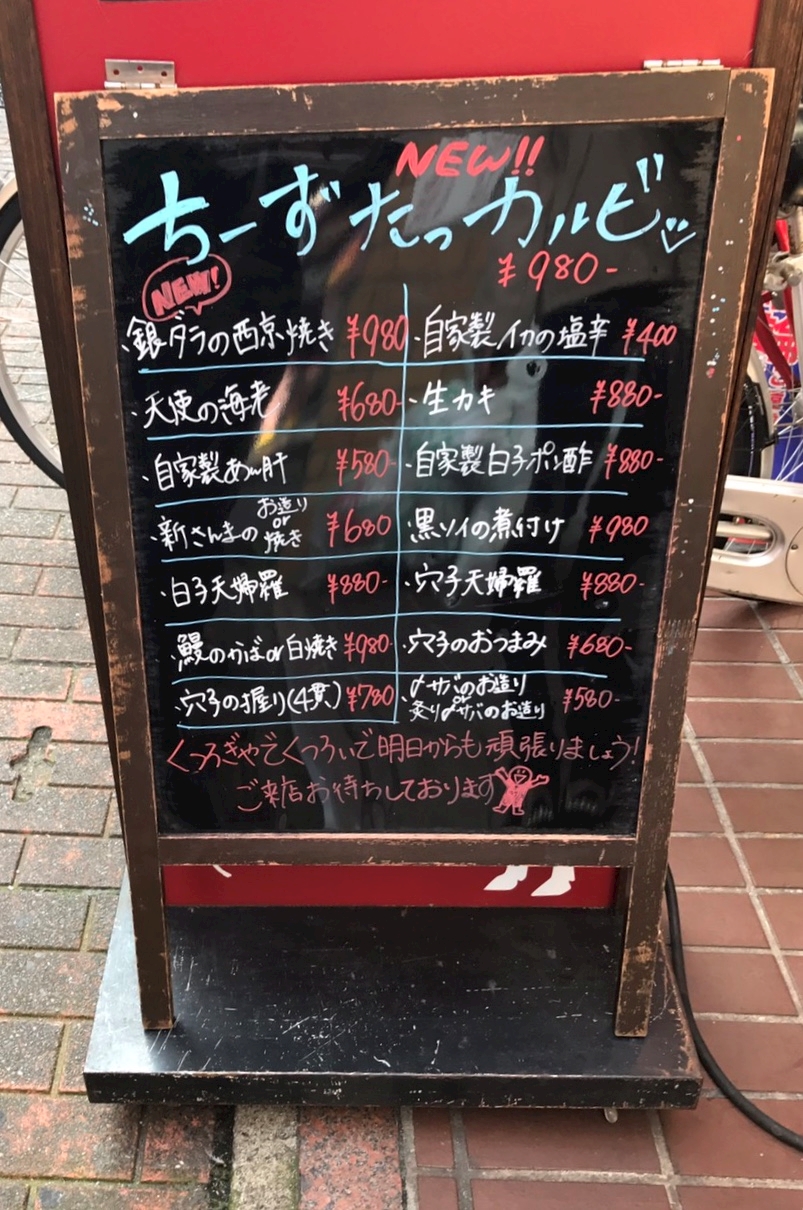 NEW!!
ちーずたっカルビ
¥980-
NEW!
・銀ダラの西京焼き ¥980
・天使の海老 ¥680-
・自家製あん肝 ¥580-
・新さんまのお造りor焼き ¥680
・白子天婦羅 ¥880-
・鰻のかばor白焼き ¥980-
・穴子の握り(4貫) ¥780
・自家製イカの塩辛 ¥400
・生カキ ¥880-
・自家製白子ポン酢 ¥880-
・黒ソイの煮付け ¥980
・穴子天婦羅 ¥880-
・穴子のおつまみ ¥680-
・〆サバのお造り
or
炙り〆サバのお造り ¥580-
くつろぎやでくつろいで明日からも頑張りましょう!
ご来店お待ちしております